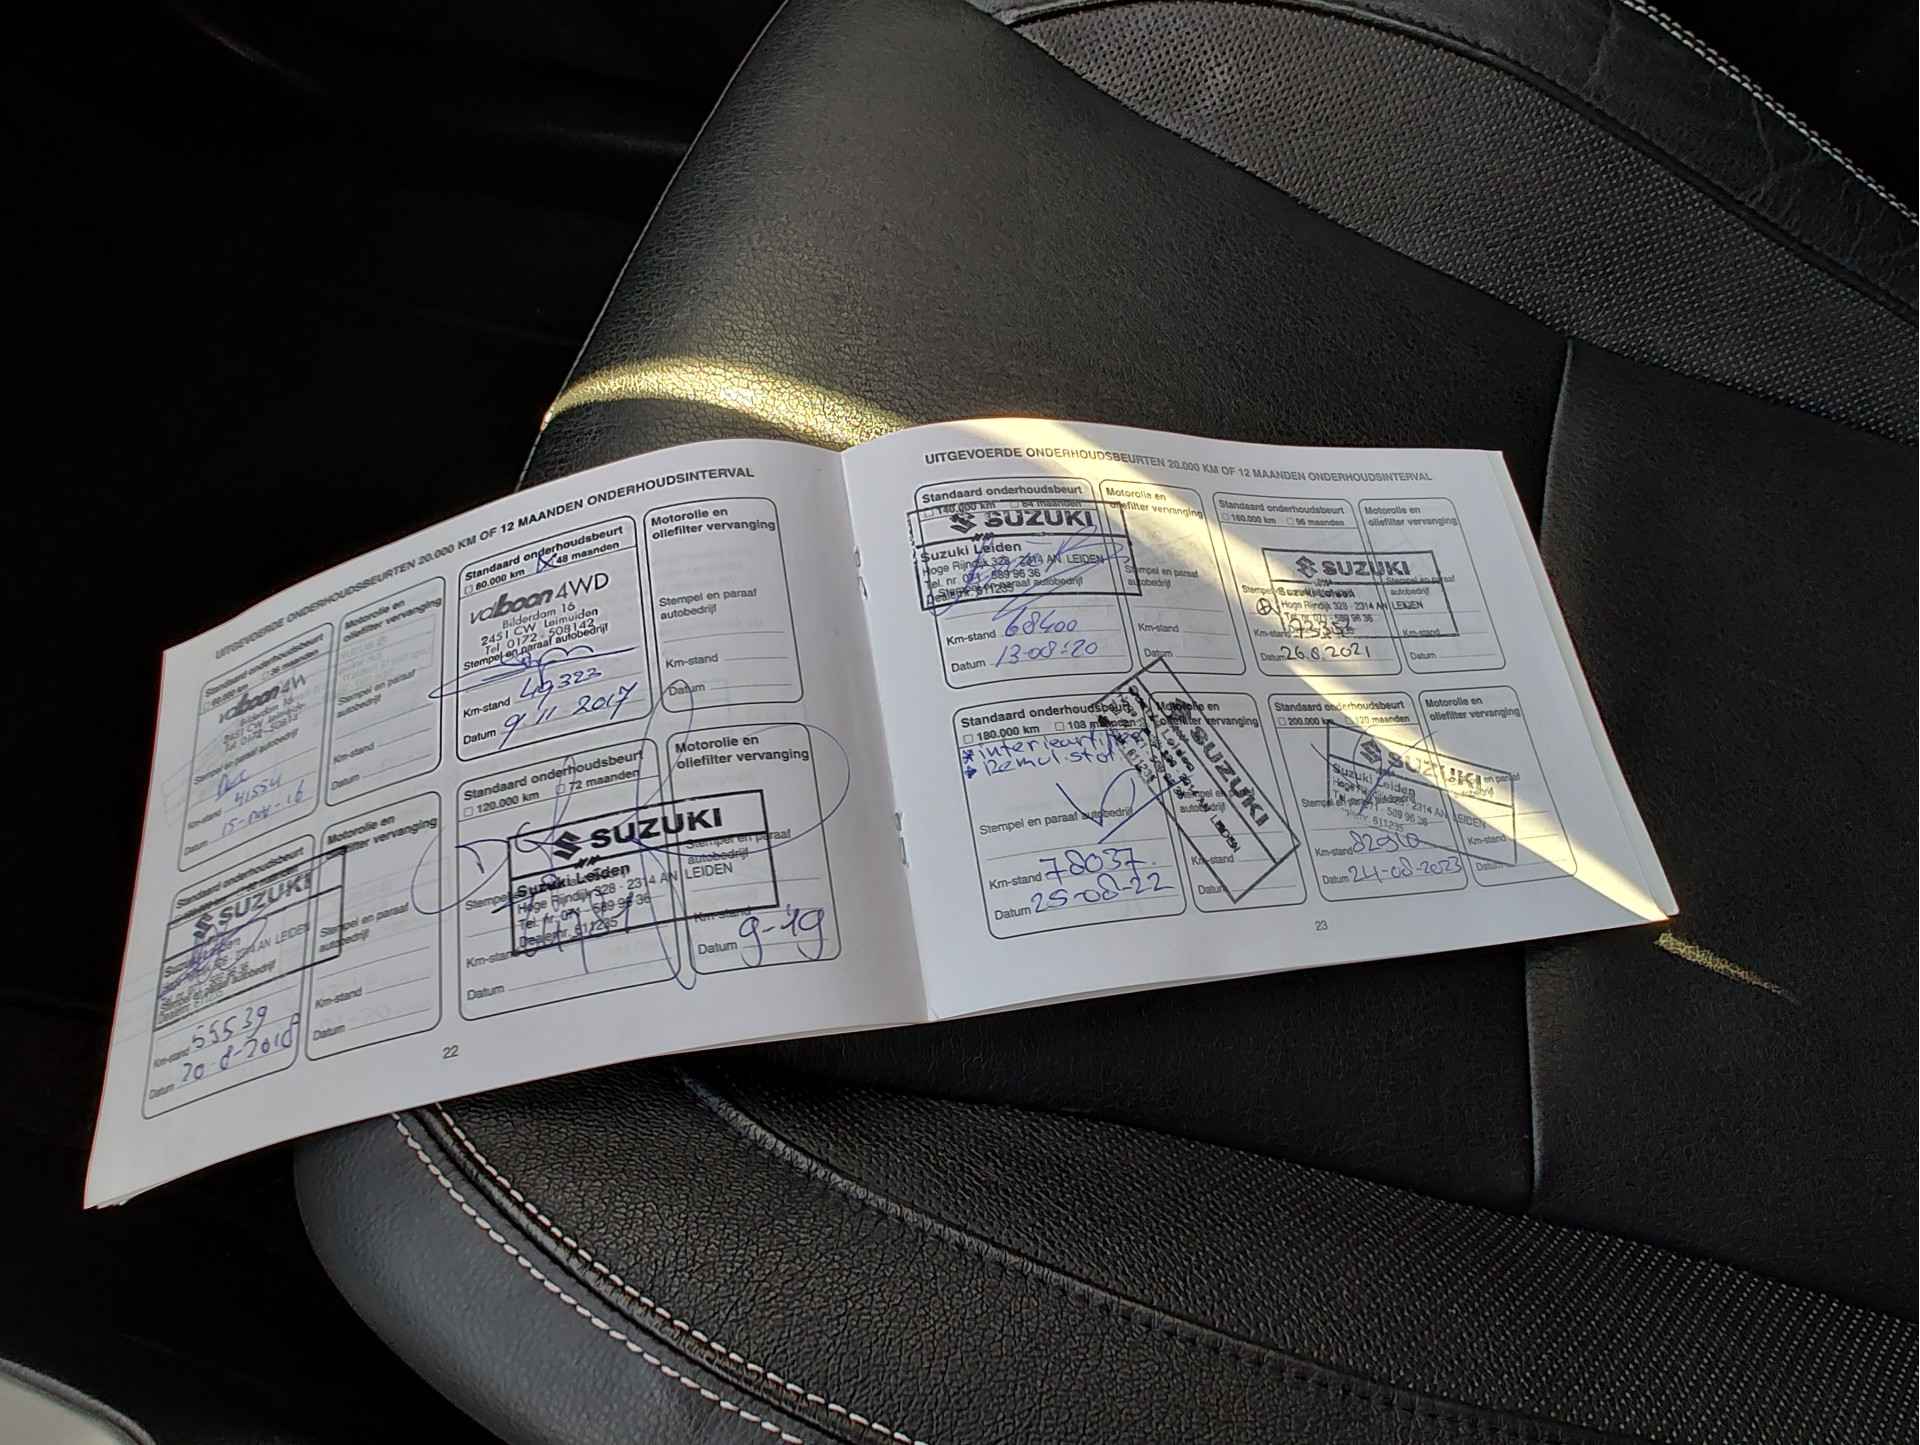 UITGEVOERDE ONDERHOUDSBEURTEN 20.000 KM OF 12 MAANDEN ONDERHOUDSINTERVAL
Standaard onderhoudsbeurt
60.000 km 36 maanden
valboon 4W
Bilderdam 16
Stempel en paraaf autobedrijf
Km-stand 41554
Datum
Motorolie en
oliefilter vervanging
Stempel en paraaf
autobedrijf
Km-stand
Datum
Standaard onderhoudsbeurt
80.000 km 48 maanden
valboon 4WD
Bilderdam 16
2451 CW Leimuiden
Tel. 0172 - 508142
Stempel en paraaf autobedrijf
Km-stand 49323
Datum 9 11 2017
Motorolie en
oliefilter vervanging
Stempel en paraaf
autobedrijf
Km-stand
Datum
Standaard onderhoudsbeurt
SUZUKI
2314 AN LEIDEN
Stempel en paraaf autobedrijf
Km-stand 55539
Datum 20-8-2018
Motorolie en
oliefilter vervanging
Stempel en paraaf
autobedrijf
Km-stand
Datum
Standaard onderhoudsbeurt
120.000 km 72 maanden
SUZUKI
Suzuki Leiden
Hoge Rijndijk 328 - 2314 AN LEIDEN
Tel. nr. 071 - 589 96 36
Dealernr. 611235
Km-stand
Datum
Motorolie en
oliefilter vervanging
Stempel en paraaf
autobedrijf
Km-stand
Datum 9-19
22
UITGEVOERDE ONDERHOUDSBEURTEN 20.000 KM OF 12 MAANDEN ONDERHOUDSINTERVAL
Standaard onderhoudsbeurt
140.000 km 84 maanden
SUZUKI
Suzuki Leiden
Hoge Rijndijk 328 - 2314 AN LEIDEN
Tel. nr. 071 - 589 96 36
Stempel en paraaf autobedrijf
Dealernr. 611235
Km-stand 68400
Datum 13-08-20
Motorolie en
oliefilter vervanging
Stempel en paraaf
autobedrijf
Km-stand
Datum
Standaard onderhoudsbeurt
160.000 km 96 maanden
SUZUKI
Hoge Rijndijk 328 - 2314 AN LEIDEN
Km-stand
Datum 26.8.2021
Motorolie en
oliefilter vervanging
Stempel en paraaf
autobedrijf
Km-stand
Datum
Standaard onderhoudsbeurt
180.000 km 108 maanden
Stempel en paraaf autobedrijf
Km-stand 78037.
Datum 25-08-22
Motorolie en
oliefilter vervanging
SUZUKI
autobedrijf
Km-stand
Datum
Standaard onderhoudsbeurt
200.000 km 120 maanden
SUZUKI
Suzuki Leiden
2314 AN LEIDEN
Km-stand
Datum 24-08-2023
Motorolie en
oliefilter vervanging
Km-stand
Datum
23